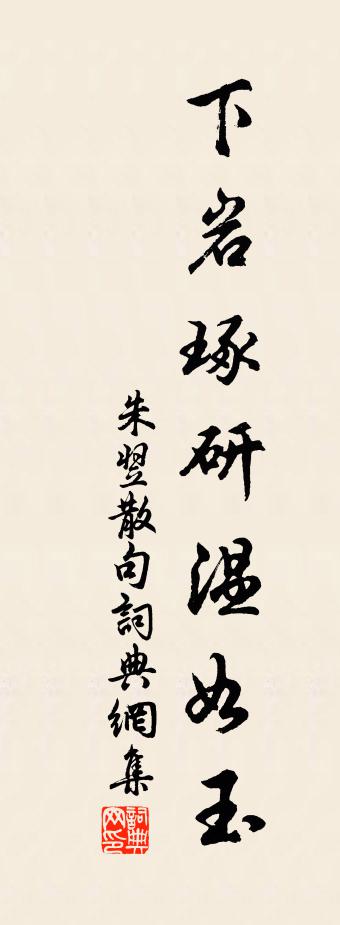 下岩琢研温如玉
朱翌散句詞典網集
詞典網印